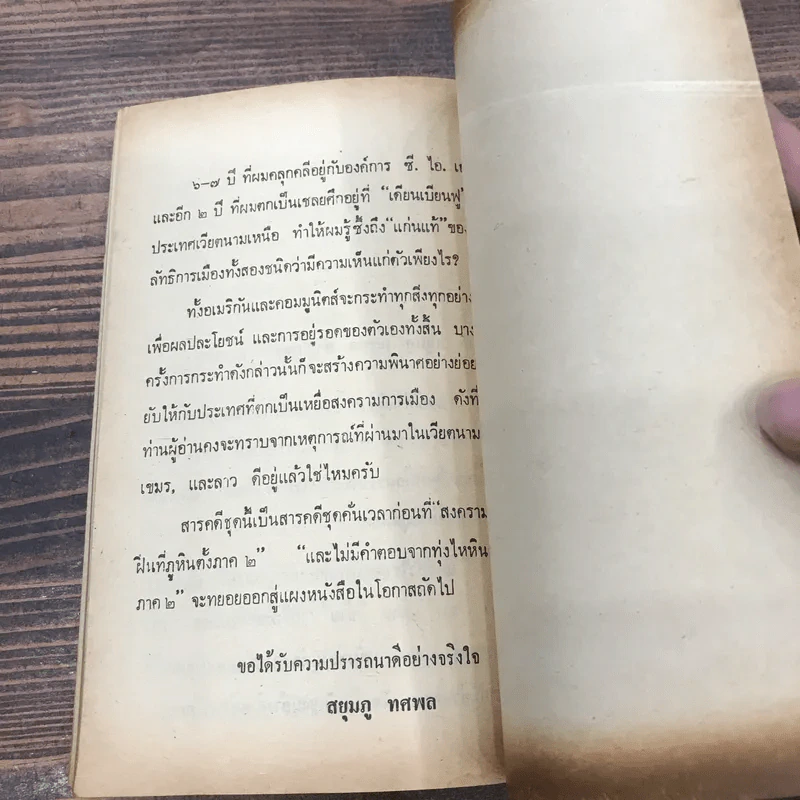 ๖–๗ ปี ที่ผมคลุกคลีอยู่กับองค์การ ซี. ไอ. เ
และอีก ๒ ปี ที่ผมตกเป็นเชลยศึกอยู่ที่ “เดียนเบียนฟู”
ประเทศเวียตนามเหนือ ทำให้ผมรู้ซึ้งถึง “แก่นแท้” ของ
ลัทธิการเมืองทั้งสองชนิดว่ามีความเห็นแก่ตัวเพียงไร?
ทั้งอเมริกันและคอมมูนิตส์จะกระทำทุกสิ่งทุกอย่าง
เพื่อผลประโยชน์ และการอยู่รอดของตัวเองทั้งสิ้น บาง
ครั้งการกระทำดังกล่าวนั้นก็จะสร้างความพินาศอย่างย่อย
ยับให้กับประเทศที่ตกเป็นเหยื่อสงครามการเมือง ดังที่
ท่านผู้อ่านคงจะทราบจากเหตุการณ์ที่ผ่านมาในเวียตนาม
เขมร, และลาว ดีอยู่แล้วใช่ไหมครับ
สารคดีชุดนี้เป็นสารคดีชุดคั่นเวลาก่อนที่ “สงคราม
ฝิ่นที่ภูหินตั้งภาค ๒” “และไม่มีคำตอบจากทุ่งไหหิน
ภาค ๒” จะทยอยออกสู่แผงหนังสือในโอกาสถัดไป
ขอได้รับความปรารถนาดีอย่างจริงใจ
สยุมภู ทศพล